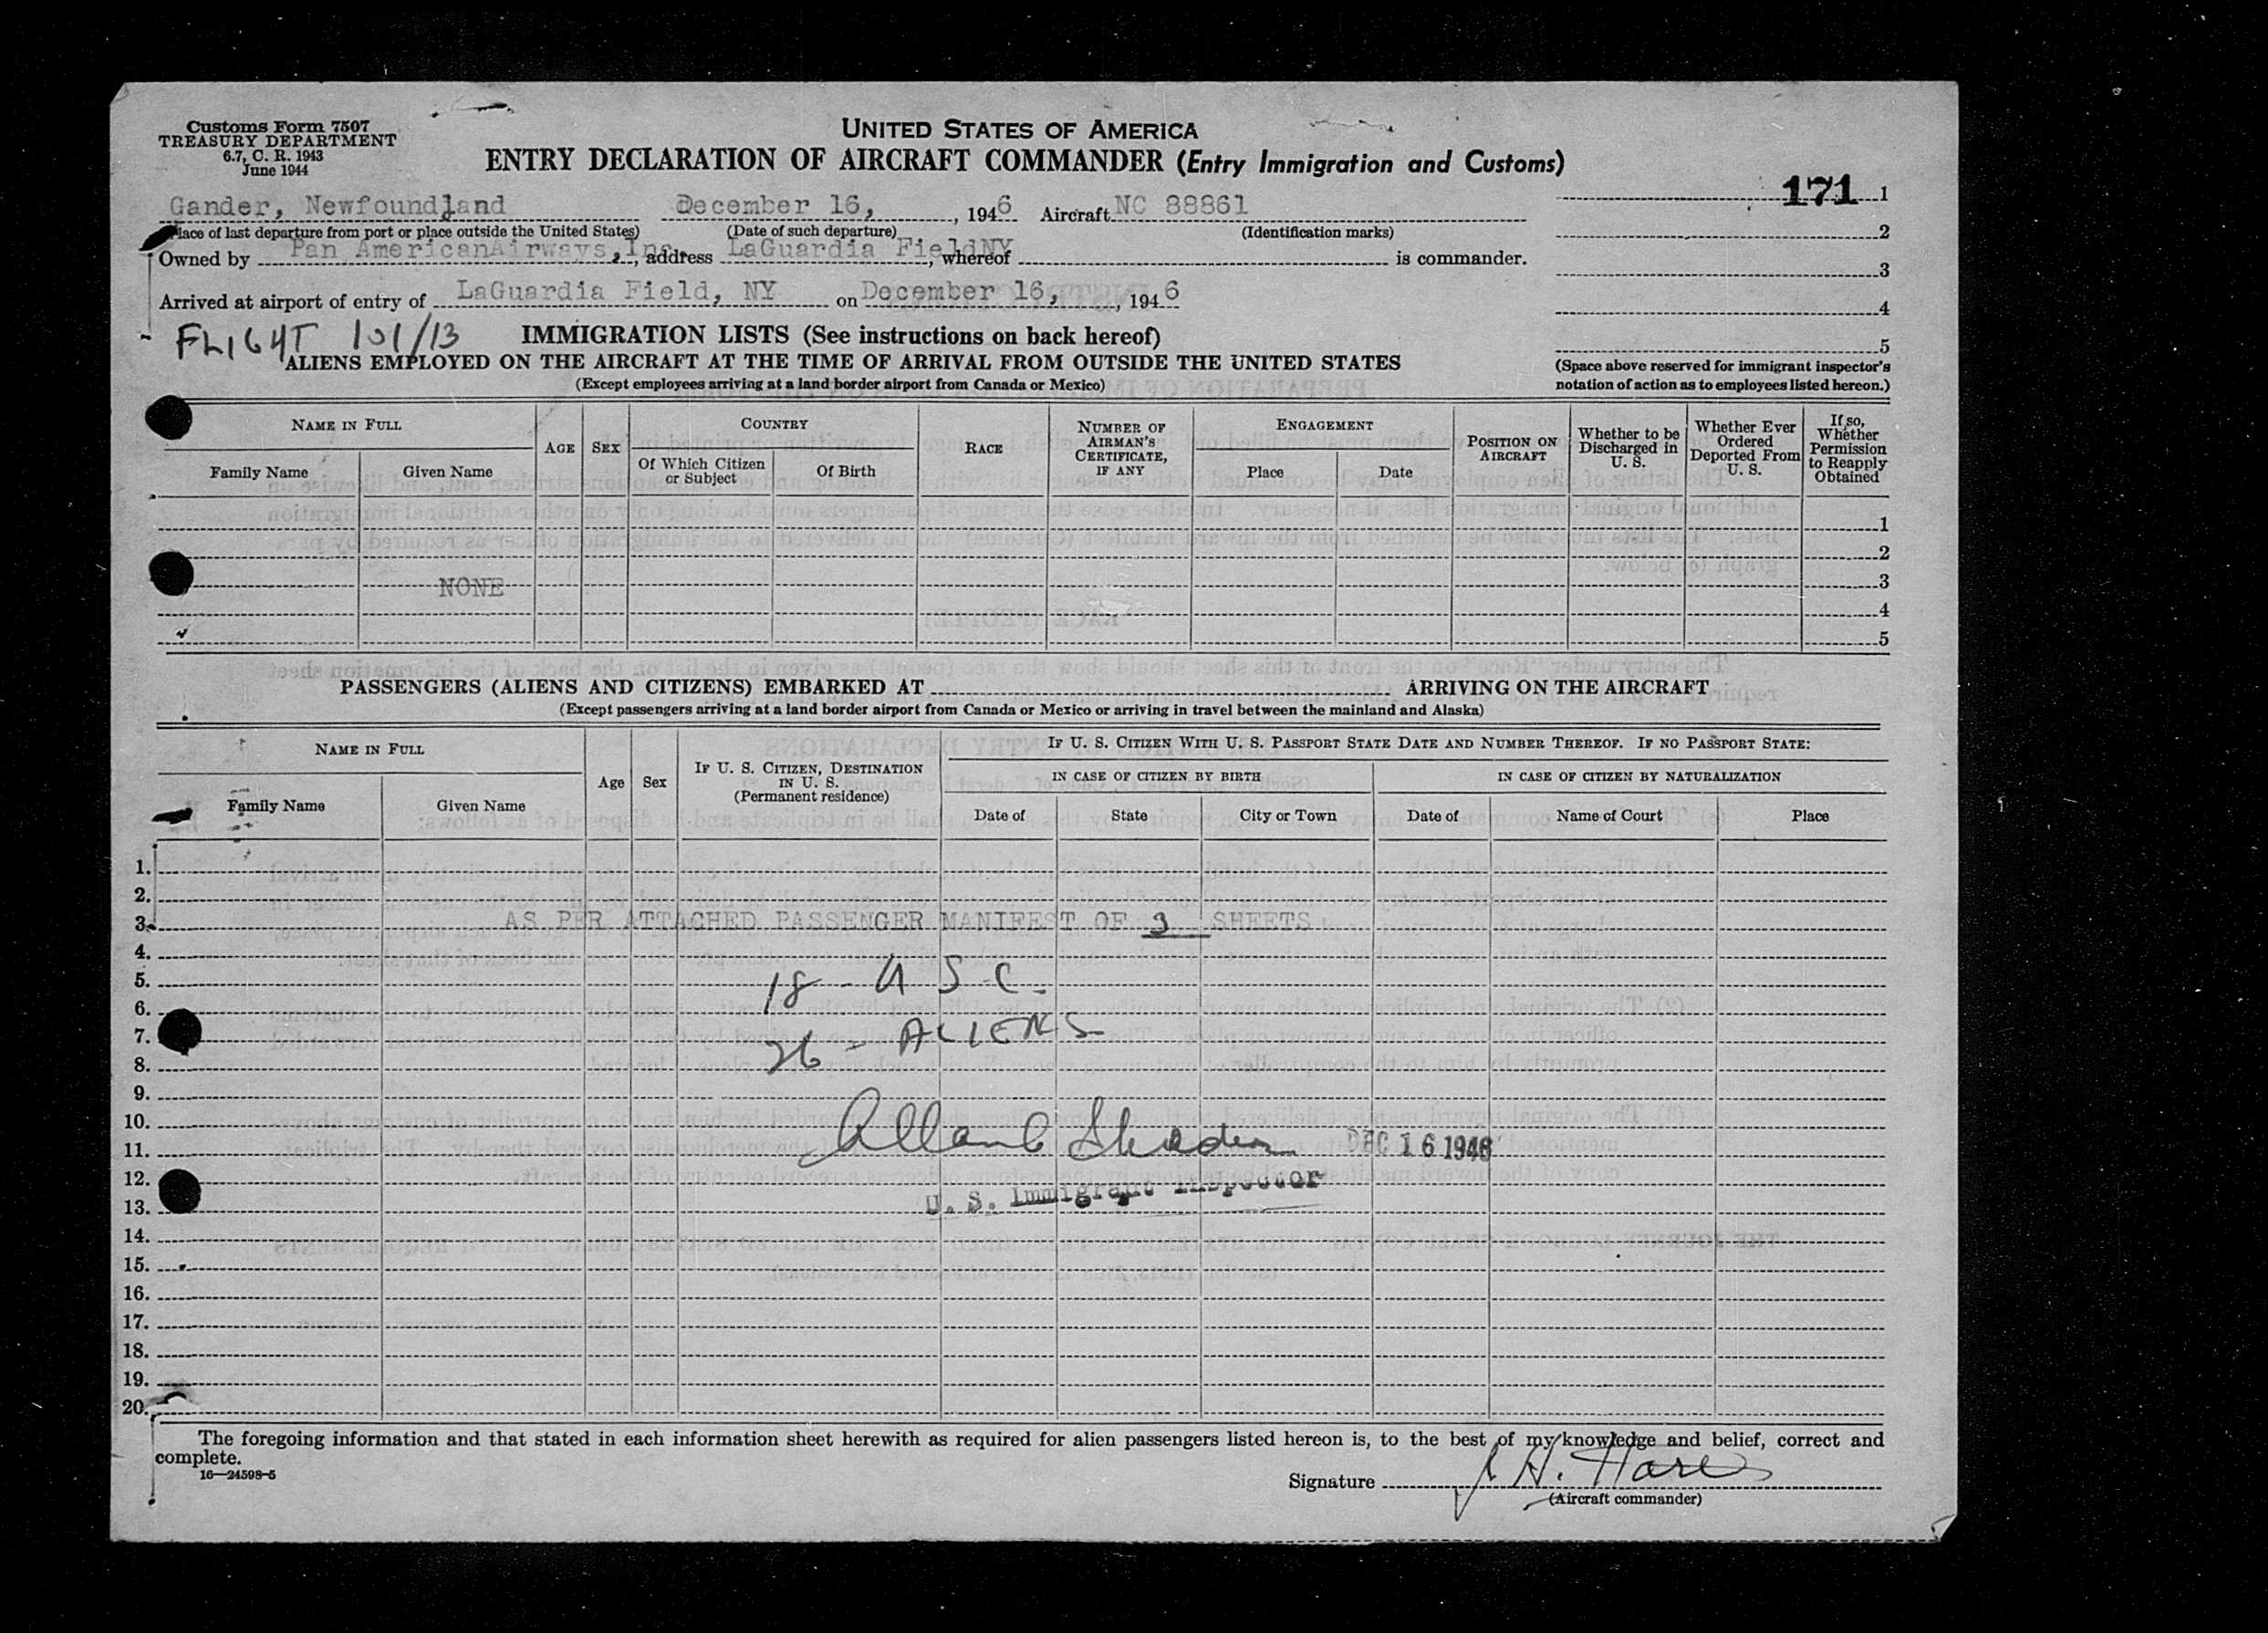 Customs Form 7507
TREASURY DEPARTMENT
6.7, C. R. 1943
June 1944
UNITED STATES OF AMERICA
ENTRY DECLARATION OF AIRCRAFT COMMANDER (Entry Immigration and Customs)
171 1
Gander, Newfoundland December 16, , 1946 Aircraft NC 88861
(Place of last departure from port or place outside the United States) (Date of such departure) (Identification marks)
2
Owned by Pan AmericanAirways, Inc., address LaGuardia FieldNY, whereof is commander.
3
Arrived at airport of entry of LaGuardia Field, NY on December 16, , 1946
4
FLIGHT 101/13 IMMIGRATION LISTS (See instructions on back hereof)
5
ALIENS EMPLOYED ON THE AIRCRAFT AT THE TIME OF ARRIVAL FROM OUTSIDE THE UNITED STATES
(Except employees arriving at a land border airport from Canada or Mexico)
(Space above reserved for immigrant inspector's
notation of action as to employees listed hereon.)
NAME IN FULL
Family Name
Given Name
AGE
SEX
COUNTRY
Of Which Citizen
or Subject
Of Birth
RACE
NUMBER OF
AIRMAN'S
CERTIFICATE,
IF ANY
ENGAGEMENT
Place
Date
POSITION ON
AIRCRAFT
Whether to be
Discharged in
U. S.
Whether Ever
Ordered
Deported From
U. S.
If so,
Whether
Permission
to Reapply
Obtained
1
2
NONE 3
4
5
PASSENGERS (ALIENS AND CITIZENS) EMBARKED AT ARRIVING ON THE AIRCRAFT
(Except passengers arriving at a land border airport from Canada or Mexico or arriving in travel between the mainland and Alaska)
NAME IN FULL
Family Name
Given Name
Age
Sex
IF U. S. CITIZEN, DESTINATION
IN U. S.
(Permanent residence)
IF U. S. CITIZEN WITH U. S. PASSPORT STATE DATE AND NUMBER THEREOF. IF NO PASSPORT STATE:
IN CASE OF CITIZEN BY BIRTH
IN CASE OF CITIZEN BY NATURALIZATION
Date of
State
City or Town
Date of
Name of Court
Place
1.
2.
3. AS PER ATTACHED PASSENGER MANIFEST OF 3 SHEETS
4.
5. 18 - U S C -
6.
7. 26 - ALIENS
8.
9.
10.
11. DEC 16 1946
12.
13. U. S. Immigrant Inspector
14.
15.
16.
17.
18.
19.
20.
The foregoing information and that stated in each information sheet herewith as required for alien passengers listed hereon is, to the best of my knowledge and belief, correct and
complete.
16—24598-5
Signature
(Aircraft commander)